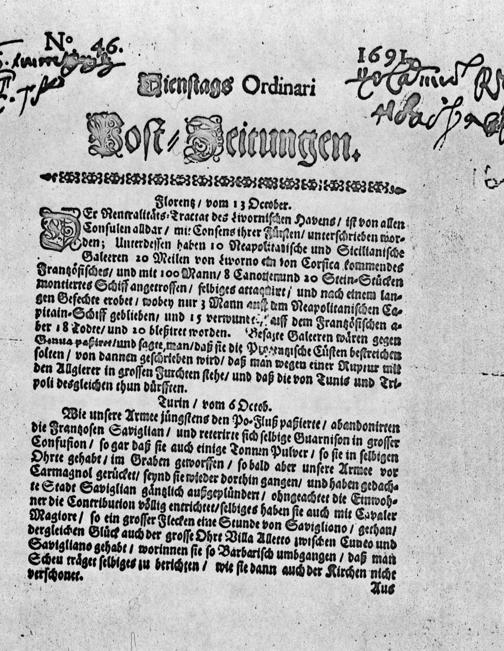 N° 46.
1691
Dienstags Ordinari
Post-Zeitungen.
Florentz/ vom 13 October.
DEr Neutralitäts-Tractat des Livornischen Havens/ ist von allen
Consulen alldar/ mit Consens ihrer Fürsten/ unterschrieben wor-
den; Unterdessen haben 10 Neapolitanische und Sicilianische
Galeeren 20 Meilen von Livorno ein von Corsica kommendes
Frantzösisches/ und mit 100 Mann/ 8 Canonen und 20 Stein-Stücken
montiertes Schiff angetroffen/ selbiges attaquirt/ und nach einem lan-
gen Gefechte erobet/ wobey nur 3 Mann auff dem Neapolitanischen Ca-
pitain-Schiff geblieben/ und 15 verwundt/ auff dem Frantzösischen a-
ber 18 Todte/ und 20 bleßiret worden. Besagte Galeeren wären gegen
Genua paßiret/ und sagte man/ daß sie die Provantzische Cüsten bestreichen
solten/ von dannen geschrieben wird/ daß man wegen einer Ruptur mit
den Algierer in grossen Furchten stehe/ und daß die von Tunis und Tri-
poli desgleichen thun dürfften.
Turin/ vom 6 Octob.
Wie unsere Armee jüngstens den Po-Fluß paßierte/ abandonirten
die Frantzosen Saviglian/ und reterirte sich selbige Guarnison in grosser
Confusion/ so gar daß sie auch einige Tonnen Pulver/ so sie in selbigen
Ohrte gehabt/ im Graben geworffen/ so bald aber unsere Armee vor
Carmagnol gerücket/ seynd sie wieder dorthin gangen/ und haben gedach-
te Stadt Saviglian gäntzlich außgeplündert/ ohngeachtet die Einwoh-
ner die Contribution völlig entrichtet/ selbiges haben sie auch mit Cavaler
Magiore/ so ein grosser Flecken eine Stunde von Savigliano/ gethan/
dergleichen Glück auch der grosse Ohrt Villa Alletto zwischen Cuneo und
Savigliano gehabt/ worinnen sie so Barbarisch umbgangen/ daß man
Scheu träget selbiges zu berichten/ wie sie dann auch der Kirchen nicht
verschonet.
Aus